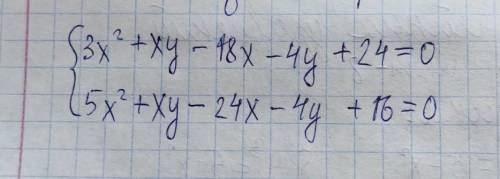 3x² + xy - 18x - 4y + 24 = 0
5x² + xy - 24x - 4y + 16 = 0